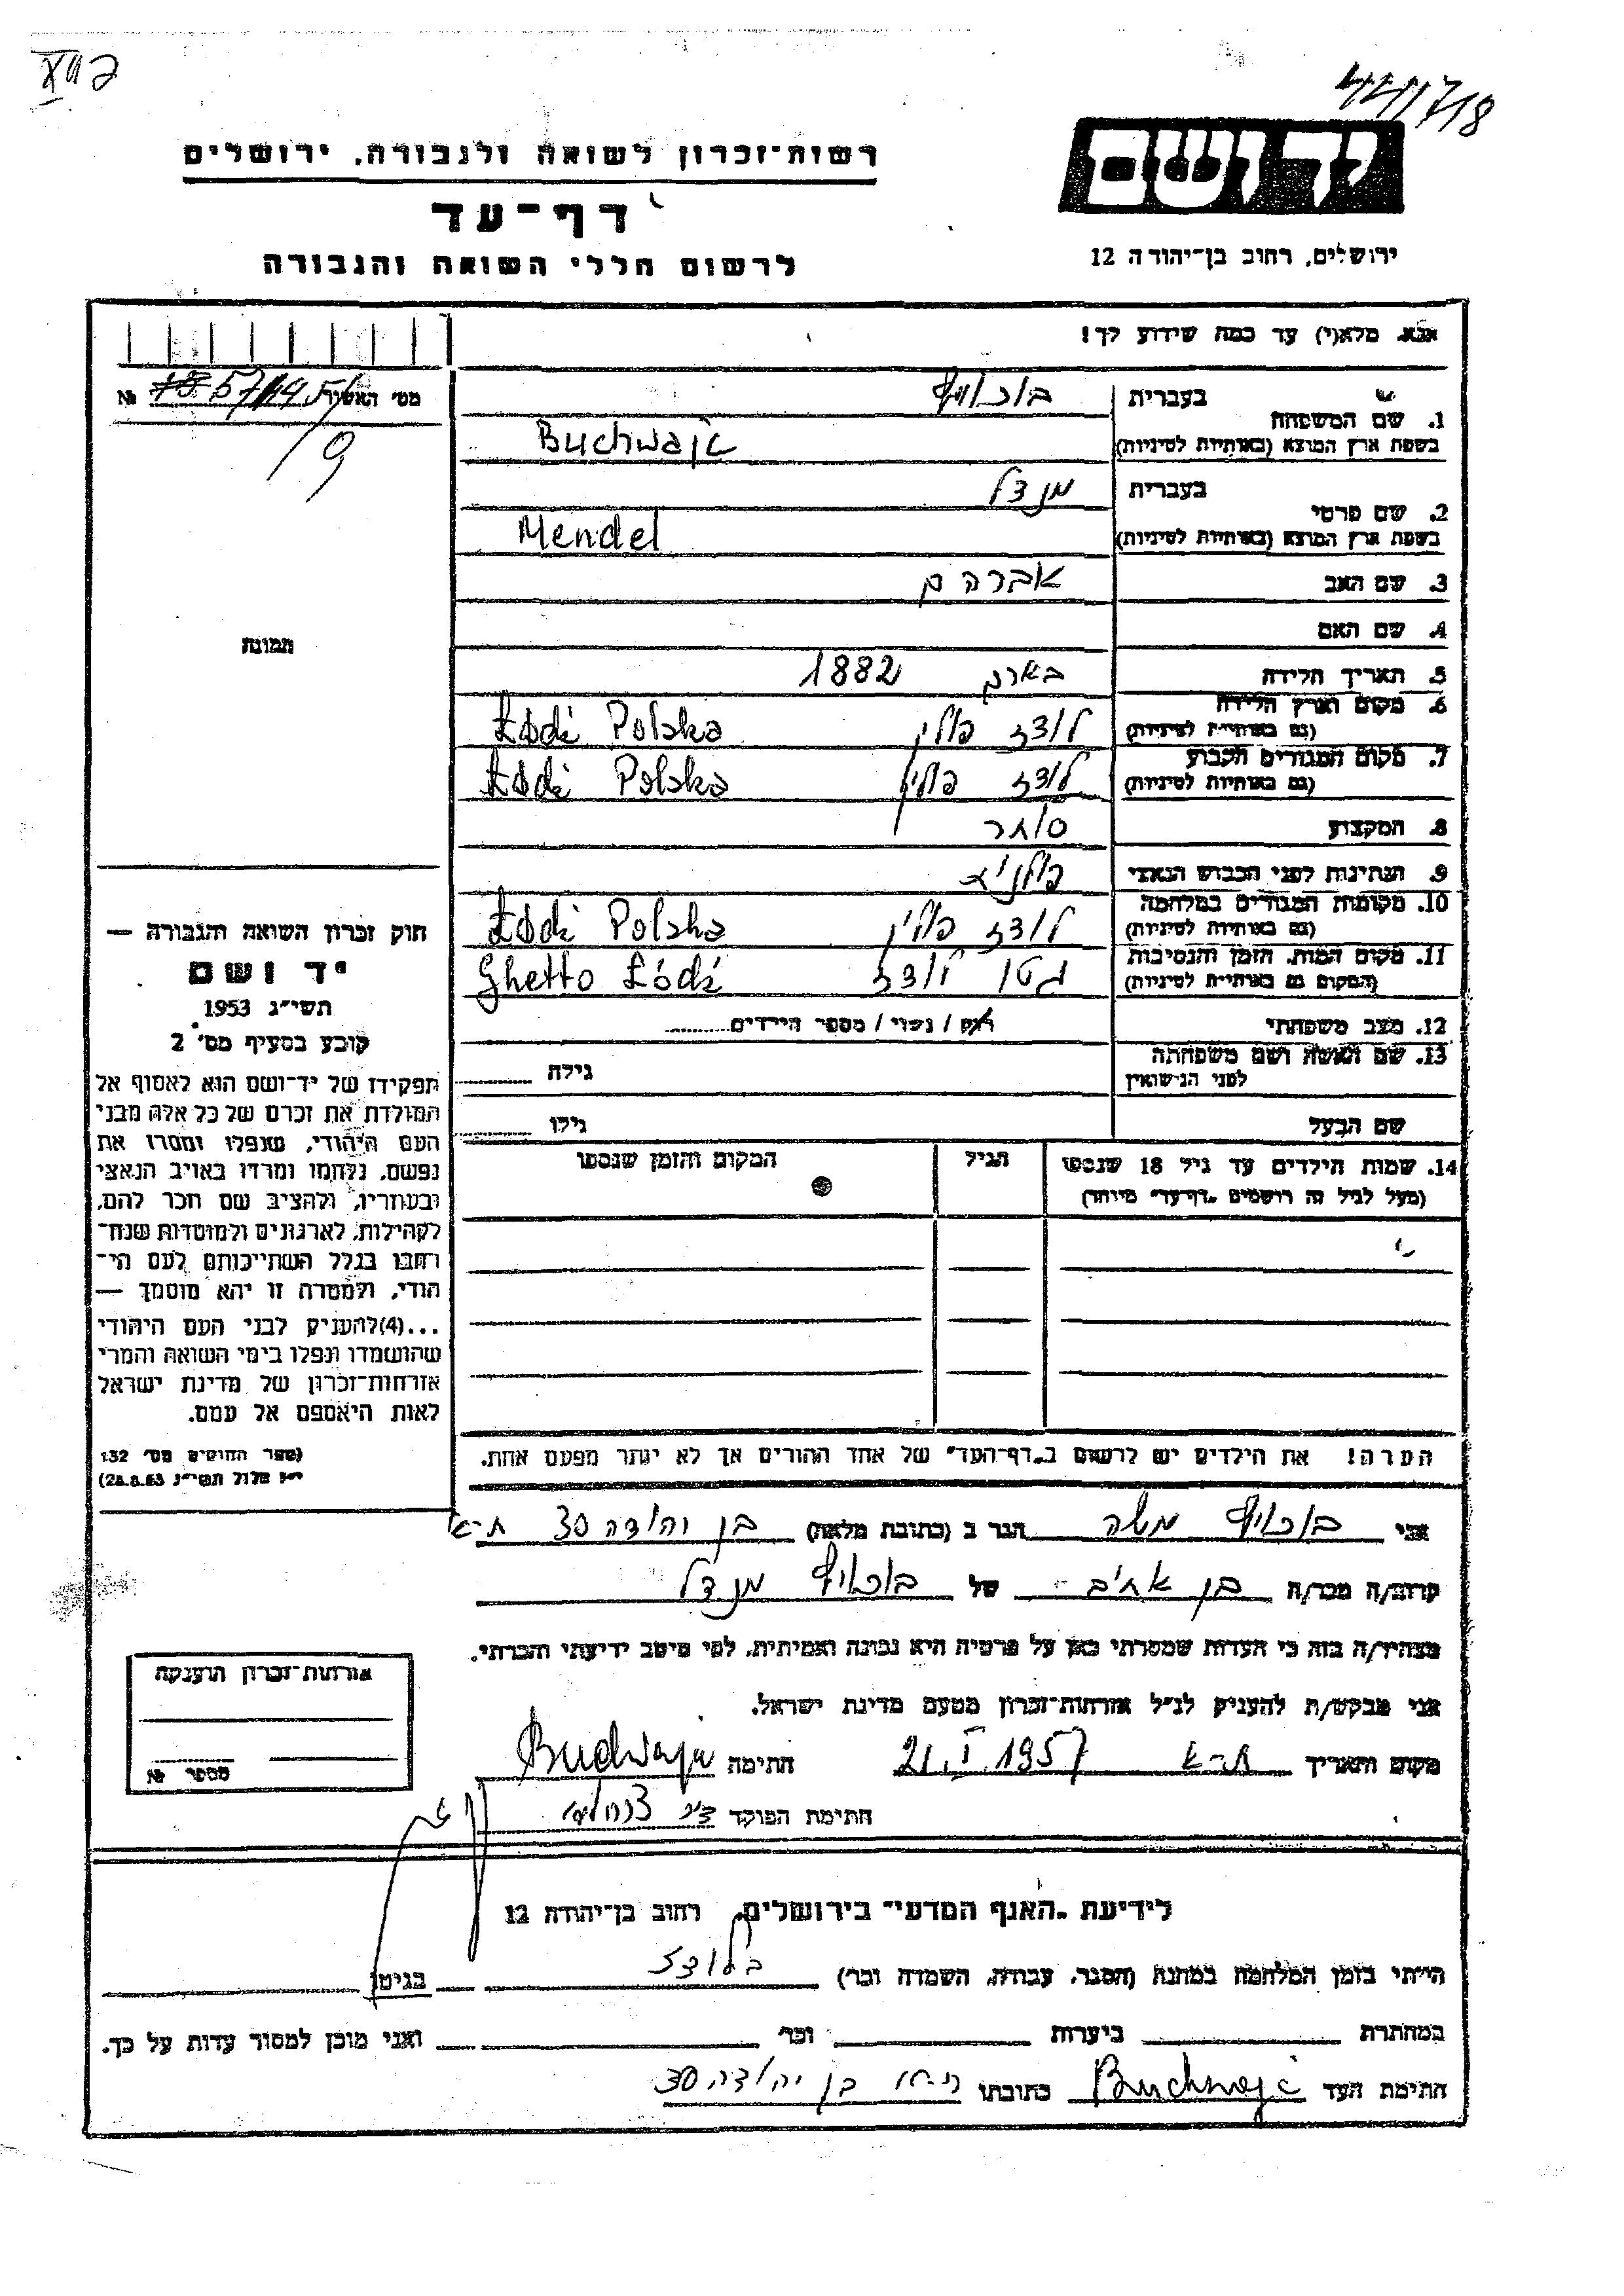 רשות־זכרון לשואה ולגבורה, ירושלים
דף־עד
לרשום חללי השואה והגבורה
יד ושם
ירושלים, רחוב בן־יהודה 12
אנא, מלא(י) עד כמה שידוע לך!
מס׳ האשור №
תמונה
1. שם המשפחה
בעברית
בשפת ארץ המוצא (באותיות לטיניות)
Buchwajc
2. שם פרטי
בעברית מנדל
בשפת ארץ המוצא (באותיות לטיניות) Mendel
3. שם האב אברהם
4. שם האם
5. תאריך הלידה בערך 1882
6. מקום וארץ הלידה לודז פולין Łódź Polska
(גם באותיות לטיניות)
7. מקום המגורים הקבוע לודז פולין Łódź Polska
(גם באותיות לטיניות)
8. המקצוע סוחר
9. הנתינות לפני הכבוש הנאצי פולנית
10. מקומות המגורים במלחמה לודז פולין Łódź Polska
(גם באותיות לטיניות)
11. מקום המות, הזמן והנסיבות גטו לודז Ghetto Łódź
(המקום גם באותיות לטיניות)
12. מצב משפחתי רוק / נשוי / מספר הילדים
13. שם האשה ושם משפחתה גילה
לפני הנישואין
שם הבעל גילו
14. שמות הילדים עד גיל 18 שנספו הגיל המקום והזמן שנספו
(מעל לגיל זה רושמים „דף־עד״ מיוחד)
הערה! את הילדים יש לרשום ב„דף־העד״ של אחד ההורים אך לא יותר מפעם אחת.
חוק זכרון השואה והגבורה —
יד ושם
תשי״ג 1953
קובע בסעיף מס׳ 2
תפקידו של יד־ושם הוא לאסוף אל
המולדת את זכרם של כל אלה מבני
העם היהודי, שנפלו ומסרו את
נפשם, נלחמו ומרדו באויב הנאצי
ובעוזריו, ולהציב שם וזכר להם,
לקהילות, לארגונים ולמוסדות שנח־
רבו בגלל השתייכותם לעם הי־
הודי, ולמטרה זו יהא מוסמך —
...(4)להעניק לבני העם היהודי
שהושמדו ונפלו בימי השואה והמרי
אזרחות־זכרון של מדינת ישראל
לאות היאספם אל עמם.
(ספר החוקים מס׳ 132
י״ז אלול תשי״ג 28.8.53)
אני משה הגר ב (כתובת מלאה) בן יהודה 30 ת־א
קרוב/ה מכר/ה בן אחיו של מנדל
מצהיר/ה בזה כי העדות שמסרתי כאן על פרטיה היא נכונה ואמיתית, לפי מיטב ידיעתי והכרתי.
אני מבקש/ת להעניק לנ״ל אזרחות־זכרון מטעם מדינת ישראל.
מקום ותאריך ת־א 21.I.1957 חתימה Buchwajc
חתימת הפוקד
אזרחות־זכרון הוענקה
מספר №
לידיעת „האגף המדעי״ בירושלים, רחוב בן־יהודה 12
הייתי בזמן המלחמה במחנה (הסגר, עבודה, השמדה וכו׳) בלודז בגיטו
במחתרת ביערות וכו׳ ואני מוכן למסור עדות על כך.
חתימת העד Buchwajc כתובתו בן יהודה 30